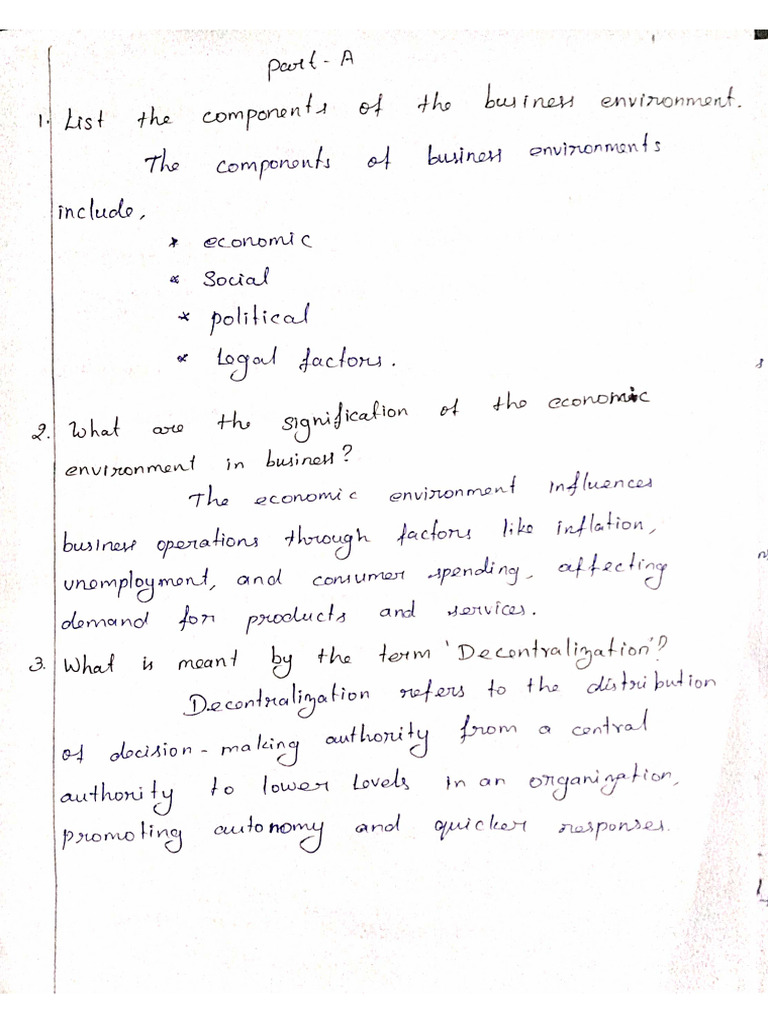 Part - A
1. List the components of the business environment.
The components of business environments
include,
* economic
* Social
* political
* Legal factors.
2. What are the signification of the economic
environment in business?
The economic environment influences
business operations through factors like inflation,
unemployment, and consumer spending, affecting
demand for products and services.
3. What is meant by the term 'Decentralization'?
Decentralization refers to the distribution
of decision-making authority from a central
authority to lower levels in an organization,
promoting autonomy and quicker responses.